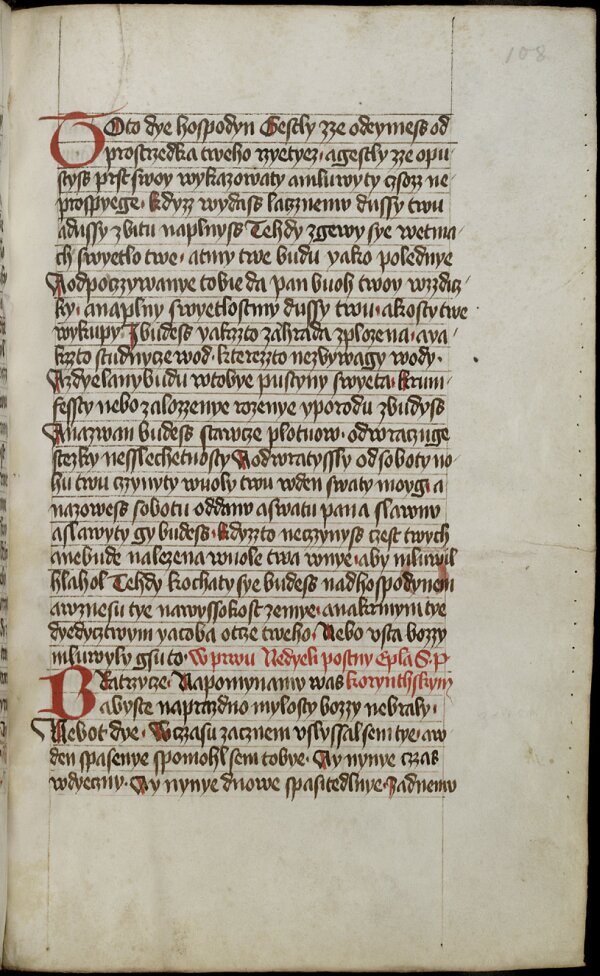 108
Toto dye hospodyn Gestly zze odeymess od
prostrzedka tweho rzyetyez· agestly zze opu
styss prst swoy wykazowaty amluwyty czozz ne
prospyege· Kdyzz wydass lacznemu dussy twu
adussy zbitu naplnyss Tehdy zgewy sye wetma
ch swyetlo twe· atmy twe budu yako polednye
Aodpoczywanye tobie da pan buoh twoy wzzdicz
ky· anaplny swyetlostmy dussy twu· akosty twe
wykupy· Ybudess yakzto zahrada zplozena· aya
kzto studnycze wod· kterezto nezbywagy wody·
Azdyelany budu wtobye pustyny swyeta· krum
fessty nebo zalozzenye rozenye yporodu zbudyss
Anazwan budess stawcze plotuow· odwraczuge
stezky nesslechetnosty Aodwratyssly od soboty no
hu twu czynyty wuoly twu wden swaty moyg· a
nazowess sobotu oddanu aswatu pana slawnu
aslawyty gy budess· Kdyzzto neczynyss czest twych
anebude nalezena wuole twa wnye· aby mluwil
hlahol Tehdy kochaty sye budess nadhospodynem
awznesu tye nawyssokost zemye· anakrmym tye
dyedycztwym yacoba otcze tweho· Nebo vsta bozzy
mluwyly gsu to· W prwu Nedyeli postny Epla S· P·
Bratrzycze· Napomynamy was korynthskym
abyste naprazdno mylosty bozzy nebraly·
Nebot dye· Wczasu zacznem vslyssal sem tye· aw
den spasenye spomohl sem tobye· Ay nynye czas
wdyeczny· Ay nynye dnowe spasitedlnye· Zadnemu